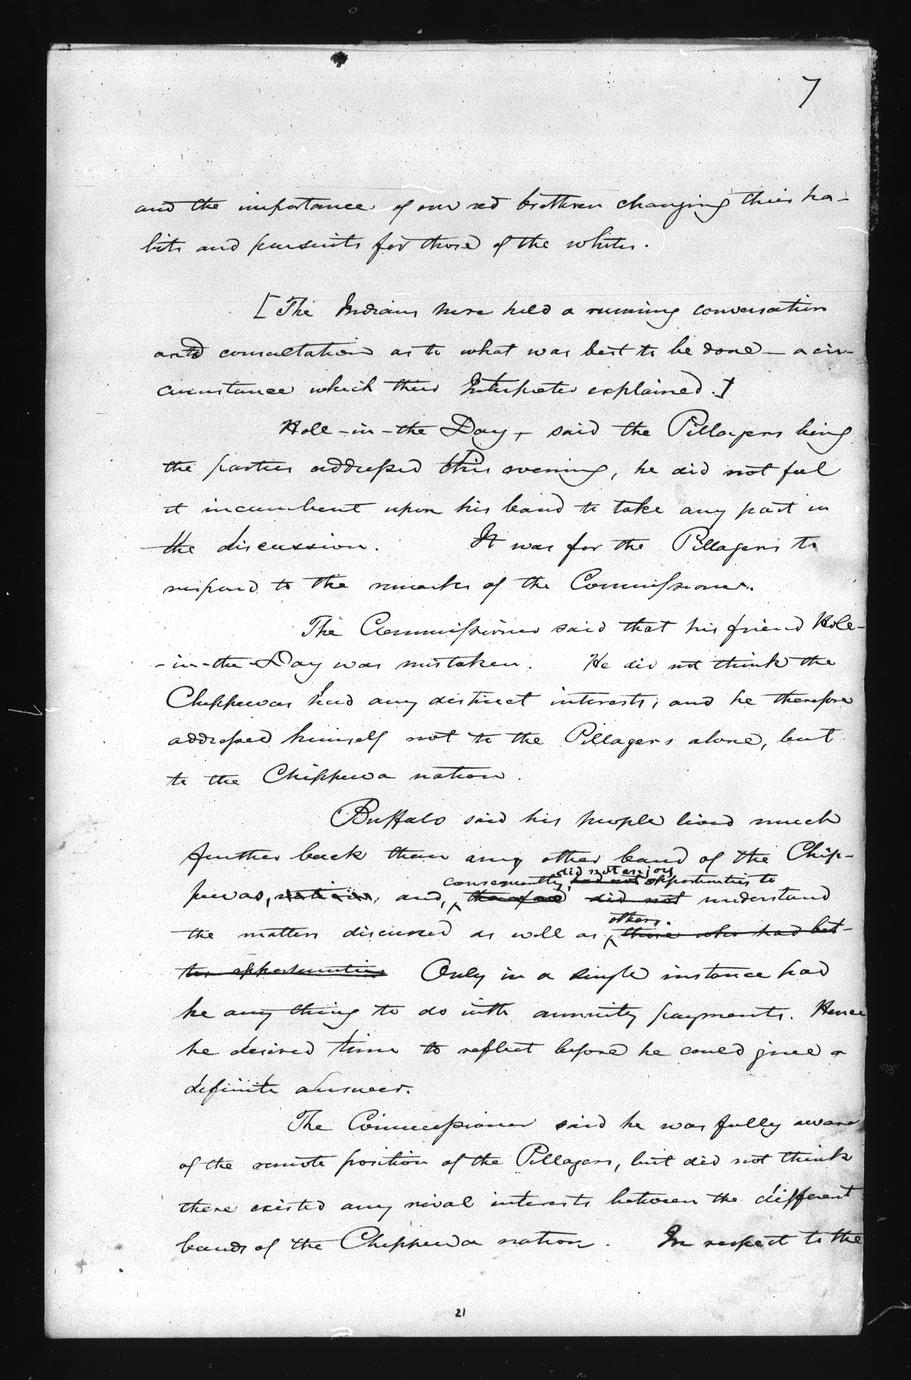 7
and the importance of our red brethren changing their ha-
bits and pursuits for those of the whites.
[The Indians here held a running conversation
and consultation as to what was best to be done — a cir-
cumstance which their Interpreter explained.]
Hole-in-the Day, said the Pillagers being
the parties addressed this evening, he did not feel
it incumbent upon his band to take any part in
the discussion. It was for the Pillagers to
respond to the remarks of the Commissioner.
The Commissioner said that his friend Hole-
-in-the-Day was mistaken. He did not think the
Chippewas had any distinct interests, and he therefore
addressed himself not to the Pillagers alone, but
to the Chippewa nation.
Buffalo said his people lived much
further back than any other band of the Chip-
did not enjoy
consequently, had not opportunities to
pewas, and, therefore did not understand
others.
the matters discussed as well as those who had bet-
ter opportunities Only in a single instance had
he any thing to do with annuity payments. Hence
he desired time to reflect before he could give a
definite answer.
The Commissioner said he was fully aware
of the remote position of the Pillagers, but did not think
there existed any rival interests between the different
bands of the Chippewa nation. In respect to the
21